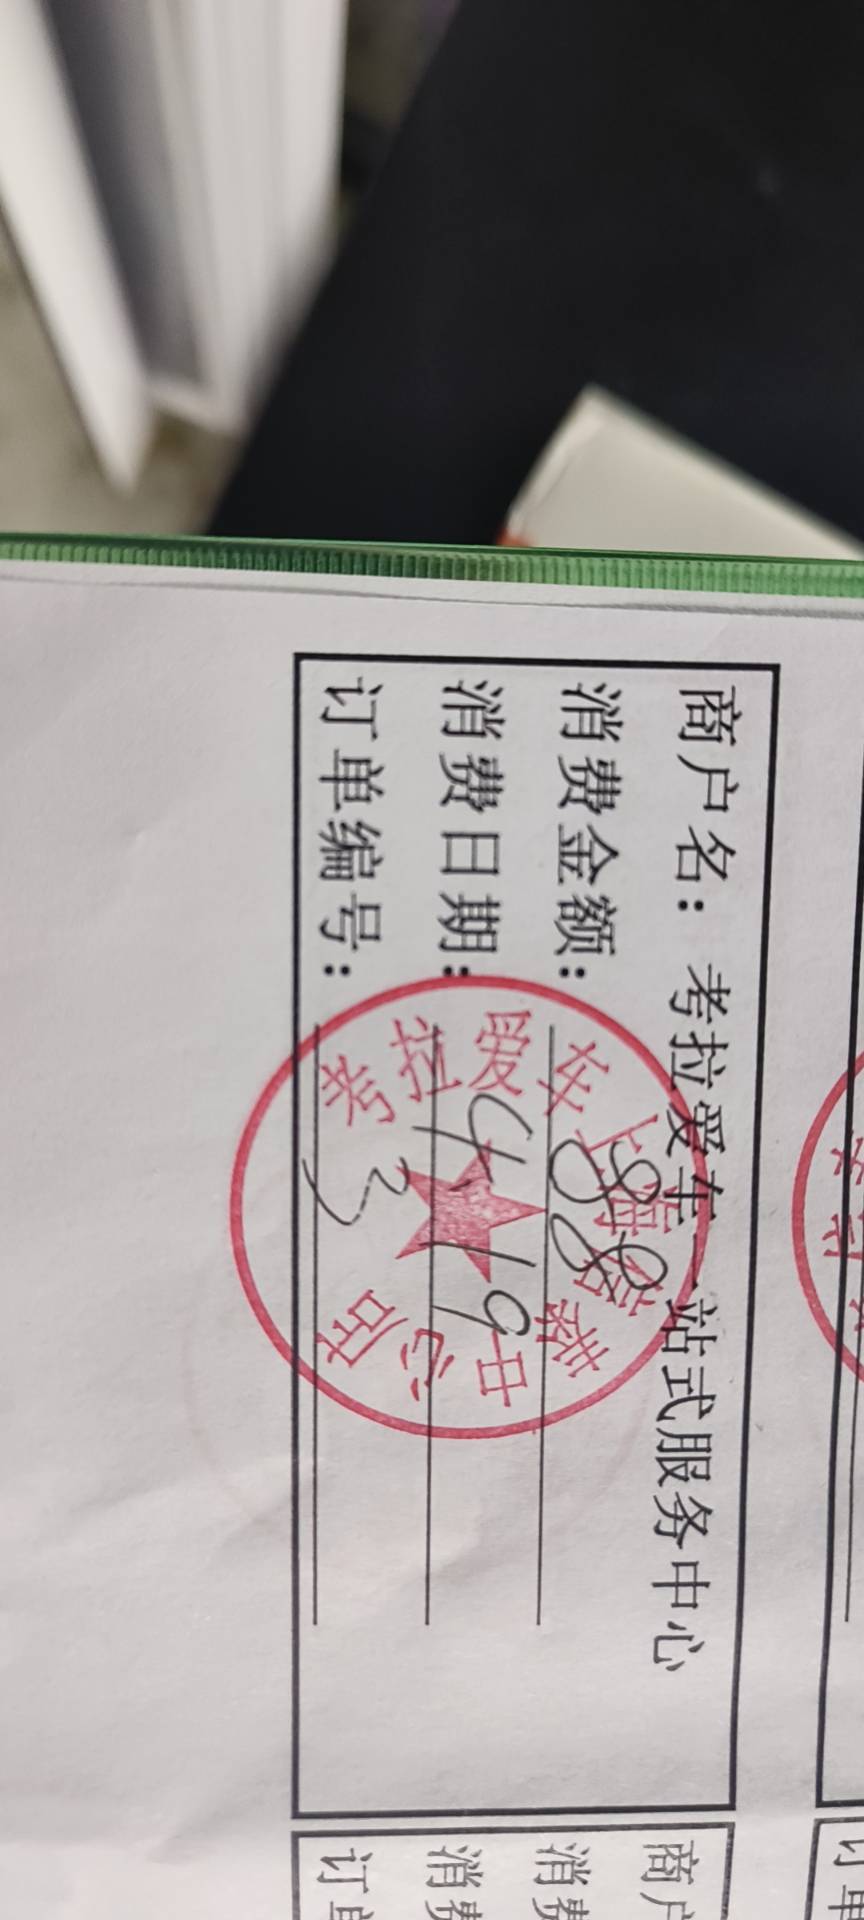 商户名：考拉爱车一站式服务中心
消费金额：88
消费日期：4.19
订单编号：3
考拉爱车上海结泰中心店
商户
消费
消费
订单